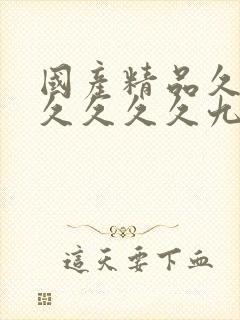 國産精品久
久久久久九
這天要下血